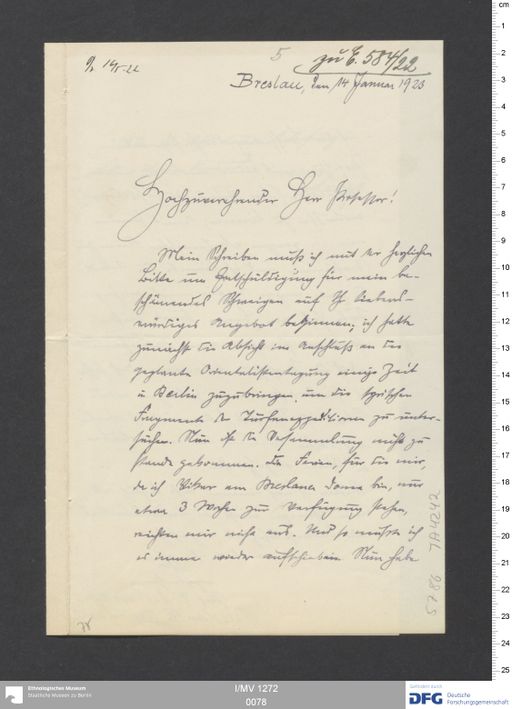 5
zu E. 584/22
Breslau, den 14 Januar 1923
Hochzuverehrender Herr Professor!
Mein Schreiben muß ich mit der herzlichen
Bitte um Entschuldigung für mein be-
schämendes Schweigen auf Ihr liebens-
würdiges Angebot beginnen; ich hatte
zunächst die Absicht im Anschluß an die
geplante Orientalistentagung einige Zeit
in Berlin zuzubringen, um die syrischen
Fragmente der Turfanexpeditionen zu unter-
suchen. Nun ist die Versammlung nicht zu
stande gekommen. Die Ferien, für die mir,
da ich Vikar am Breslauer Dome bin, nur
etwa 3 Wochen zur Verfügung stehen,
reichten mir nicht aus. Und so mußte ich
es immer wieder aufschieben. Nun habe
78
Ethnologisches Museum
Staatliche Museen zu Berlin
I/MV 1272
0078
Gefördert durch
DFG
Deutsche
Forschungsgemeinschaft
cm
1
2
3
4
5
6
7
8
9
10
11
12
13
14
15
16
17
18
19
20
21
22
23
24
25